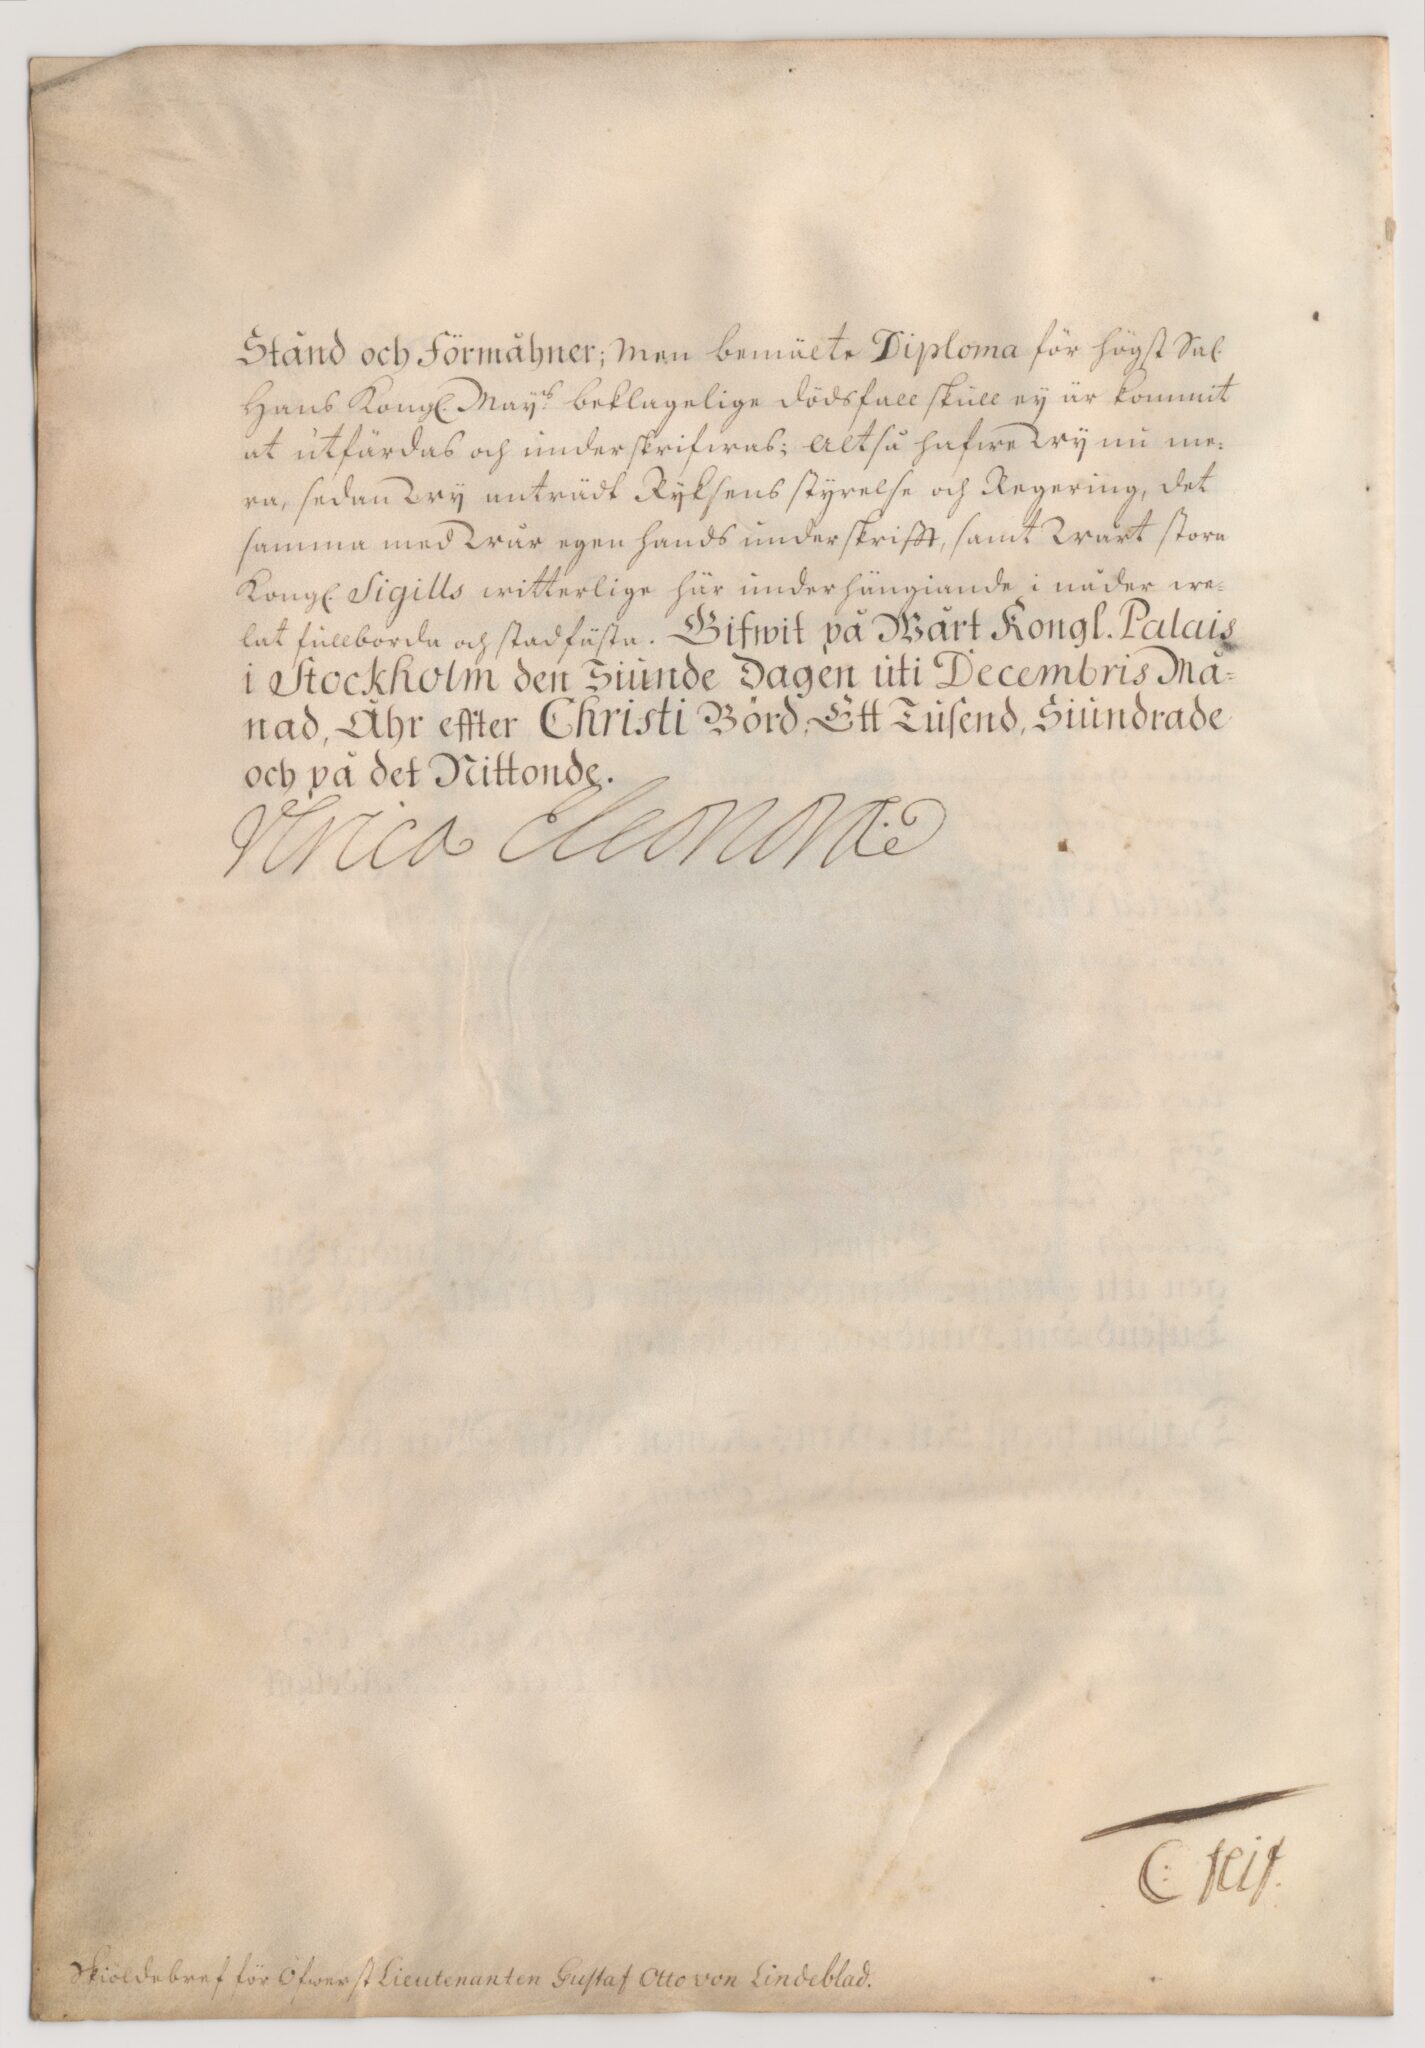 Stånd och Förmåhner; Men bemälte Diploma för högst Sal.
Hans Kongl. Mayts beklagelige dödsfall skull ey är kommit
at utfärdas och underskrifwas; Altså hafwe Wÿ nu me:
ra, sedan Wÿ anträdt Rÿksens stÿrelse och Regering, det
samma med Wår egen hands underskrifft, samt Wårt stora
Kongl. Sigills witterlige här underhängiande i nåder we:
lat fullborda och stadfästa. Gifwit på Wårt Kongl. Palais
i Stockholm den Siunde Dagen uti Decembris Må=
nad, Åhr effter Christi Börd, Ett Tusend, Siundrade
och på det Nittonde.
Ulrica Eleonora
C: Feif.
Skiöldebref för Öfwerst Lieutenanten Gustaf Otto von Lindeblad.